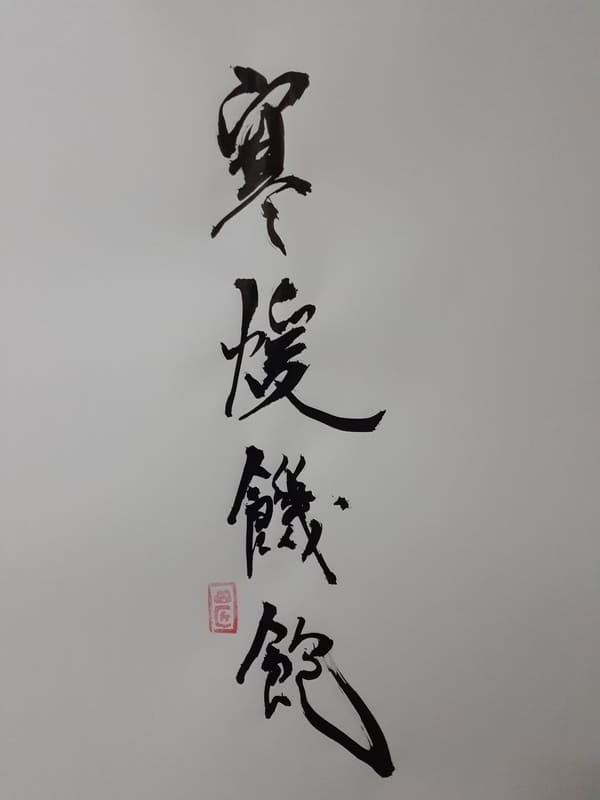 寒煖饑飽